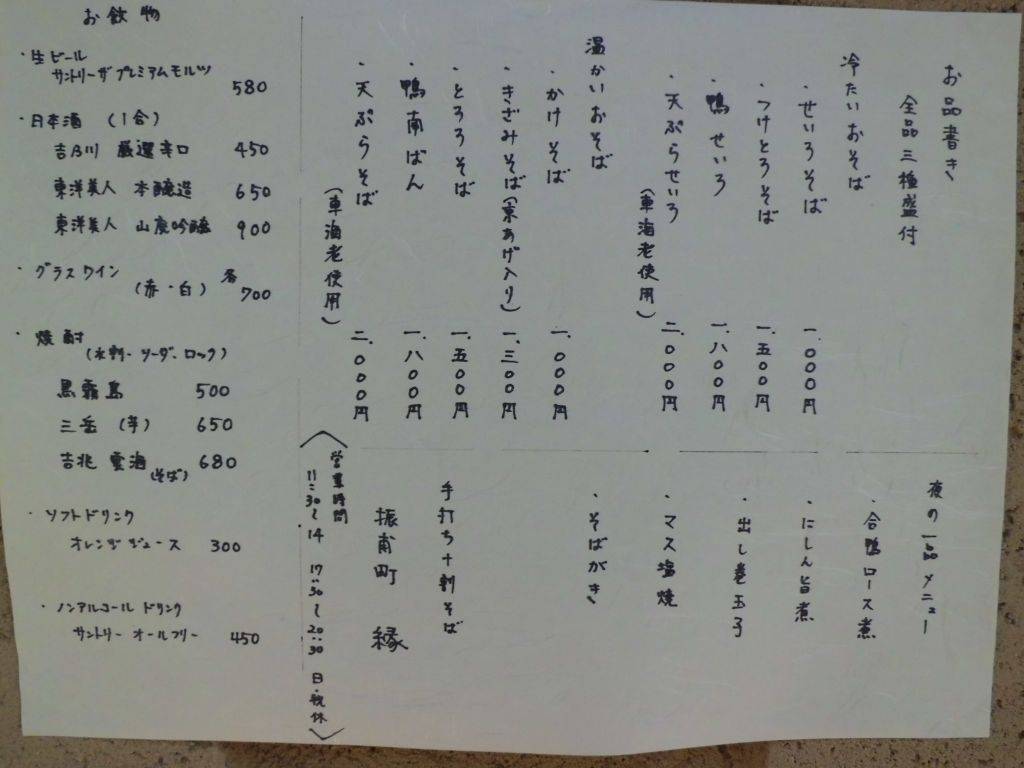 お品書き
全品三種盛付
冷たいおそば
・せいろそば 一、〇〇〇円
・つけとろそば 一、五〇〇円
・鴨せいろ 一、八〇〇円
・天ぷらせいろ 二、〇〇〇円
(車海老使用)
温かいおそば
・かけそば 一、〇〇〇円
・きざみそば(京あげ入り) 一、三〇〇円
・とろろそば 一、五〇〇円
・鴨南ばん 一、八〇〇円
・天ぷらそば 二、〇〇〇円
(車海老使用)
夜の一品メニュー
・合鴨ロース煮
・にしん旨煮
・出し巻玉子
・マス塩焼
・そばがき
手打ち十割そば
振甫町 縁
〈営業時間 11:30〜14 17:30〜20:30 日・祝休〉
お飲物
・生ビール
サントリーザプレミアムモルツ 580
・日本酒 (1合)
吉乃川 厳選辛口 450
東洋美人 本醸造 650
東洋美人 山廃吟醸 900
・グラスワイン
(赤・白) 各700
・焼酎
(水割・ソーダ・ロック)
黒霧島 500
三岳 (芋) 650
吉兆 雲海 (そば) 680
・ソフトドリンク
オレンジジュース 300
・ノンアルコールドリンク
サントリーオールフリー 450